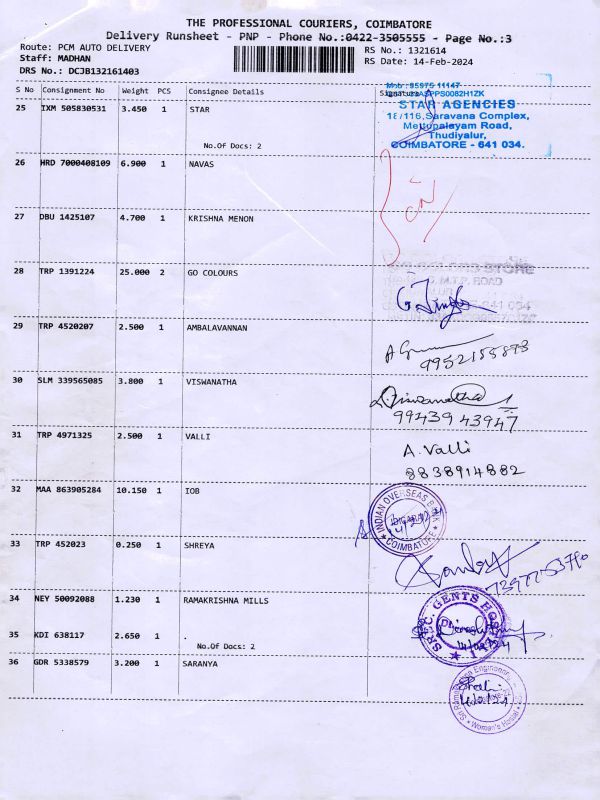 THE PROFESSIONAL COURIERS, COIMBATORE
Delivery Runsheet - PNP - Phone No.:0422-3505555 - Page No.:3
Route: PCM AUTO DELIVERY
Staff: MADHAN
DRS No.: DCJB132161403
RS No.: 1321614
RS Date: 14-Feb-2024
S No Consignment No Weight PCS Consignee Details Signature
25 IXM 505830531 3.450 1 STAR
No.Of Docs: 2
STAR AGENCIES
Saravana Complex,
Mettupalayam Road,
Thudiyalur,
COIMBATORE - 641 034.
26 HRD 7000408109 6.900 1 NAVAS
27 DBU 1425107 4.700 1 KRISHNA MENON
28 TRP 1391224 25.000 2 GO COLOURS
29 TRP 4520207 2.500 1 AMBALAVANNAN
30 SLM 339565085 3.800 1 VISWANATHA
9943943947
31 TRP 4971325 2.500 1 VALLI
A. Valli
8838914882
32 MAA 863905284 10.150 1 IOB
INDIAN OVERSEAS BANK
COIMBATORE
33 TRP 452023 0.250 1 SHREYA
34 NEY 50092088 1.230 1 RAMAKRISHNA MILLS
35 KDI 638117 2.650 1 .
No.Of Docs: 2
36 GDR 5338579 3.200 1 SARANYA